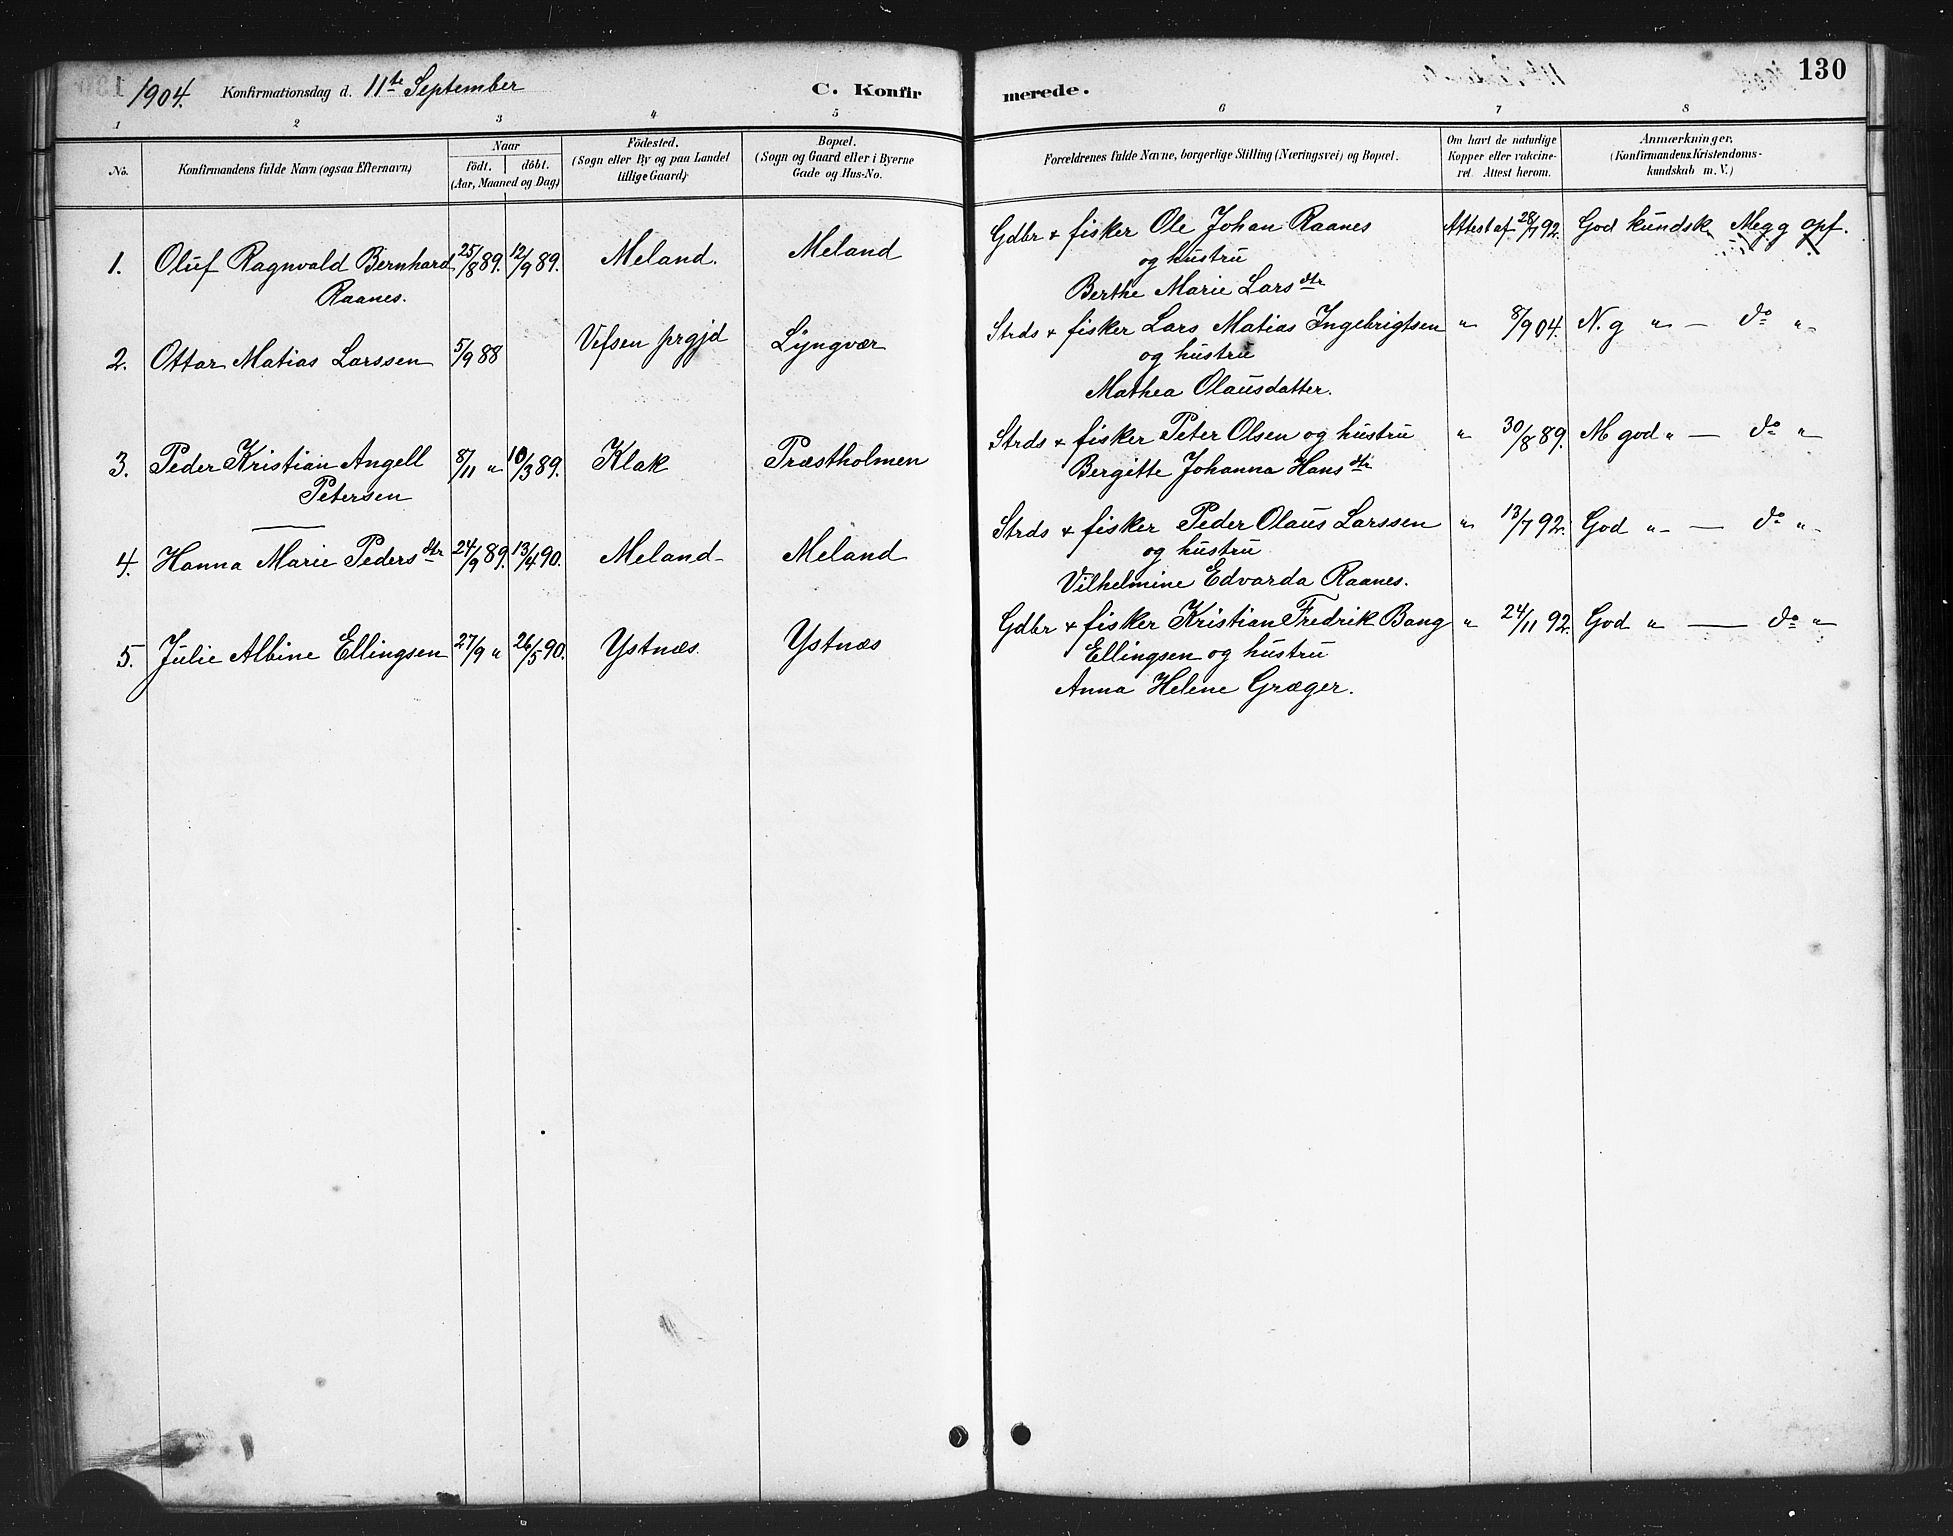 1904. Konfirmationsdag d. 11te September C. Konfirmerede. 130
1 2 3 4 5 6 7 8
No. Konfirmandens fulde Navn (ogsaa Efternavn) Naar födt. döbt. (Aar, Maaned og Dag) Födested. (Sogn eller By og paa Landet tillige Gaard) Bopæl. (Sogn og Gaard eller i Byerne Gade og Hus-No. Forældrenes fulde Navne, borgerlige Stilling (Næringsvei) og Bopæl. Om havt de naturlige Kopper eller vakcineret. Attest herom. Anmærkninger, (Konfirmandens Kristendomskundskab m. V.)
1. Oluf Ragnvald Bernhard 25/8 89. 12/9 89. Meland. Meland Gdbr & fisker Ole Johan Raanes Attest af 28/7 92. God kundsk. Megg opf.
Raanes. og hustru
Berthe Marie Larsdtr
2. Ottar Matias Larssen 5/9 88 Vefsen prgjd Lyngvær Strds & fisker Lars Matias Ingebrigtsen " 8/9 04. N. g " — do "
og hustru
Mathea Olausdatter.
3. Peder Kristian Angell 8/11 " 10/3 89. Klak Præstholmen Strds & fisker Peter Olsen og hustru " 30/8 89. M god " — do "
Petersen Bergitte Johanna Hansdtr
4. Hanna Marie Pedersdtr 24/9 89. 13/4 90. Meland Meland Strds & fisker Peder Olaus Larssen " 13/7 92. God " — do "
og hustru
Vilhelmine Edvarda Raanes.
5. Julie Albine Ellingsen 27/9 " 26/5 90. Ystnæs. Ystnæs Gdbr & fisker Kristian Fredrik Bang " 24/11 92. God " — do "
Ellingsen og hustru
Anna Helene Græger.